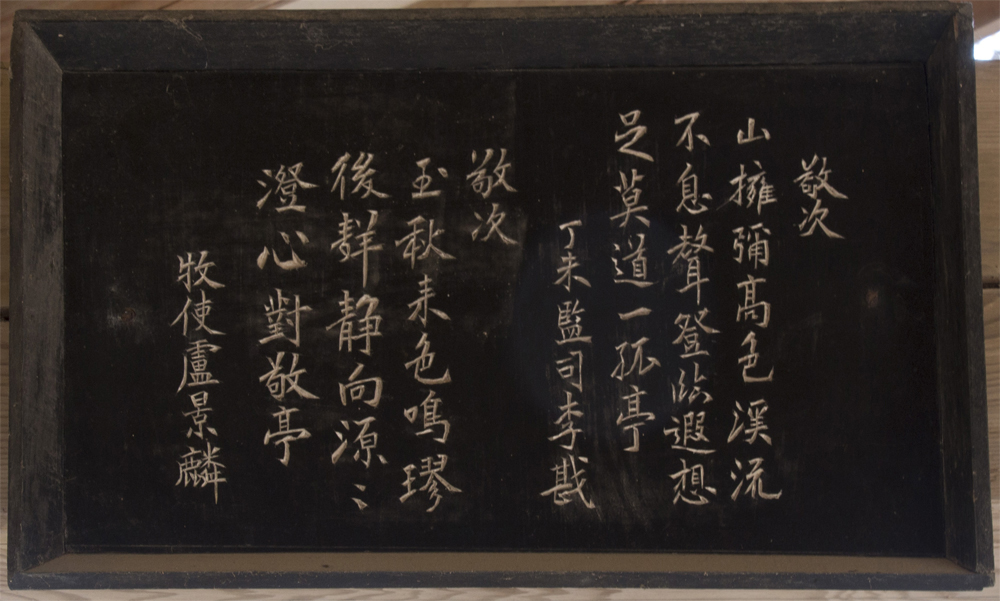 敬次
山擁彌高色溪流
不息聲登臨遐想
足莫道一孤亭
丁未監司李戡
敬次
玉秋来色鳴璆
後群静向源〻
澄心對敬亭
牧使盧景麟